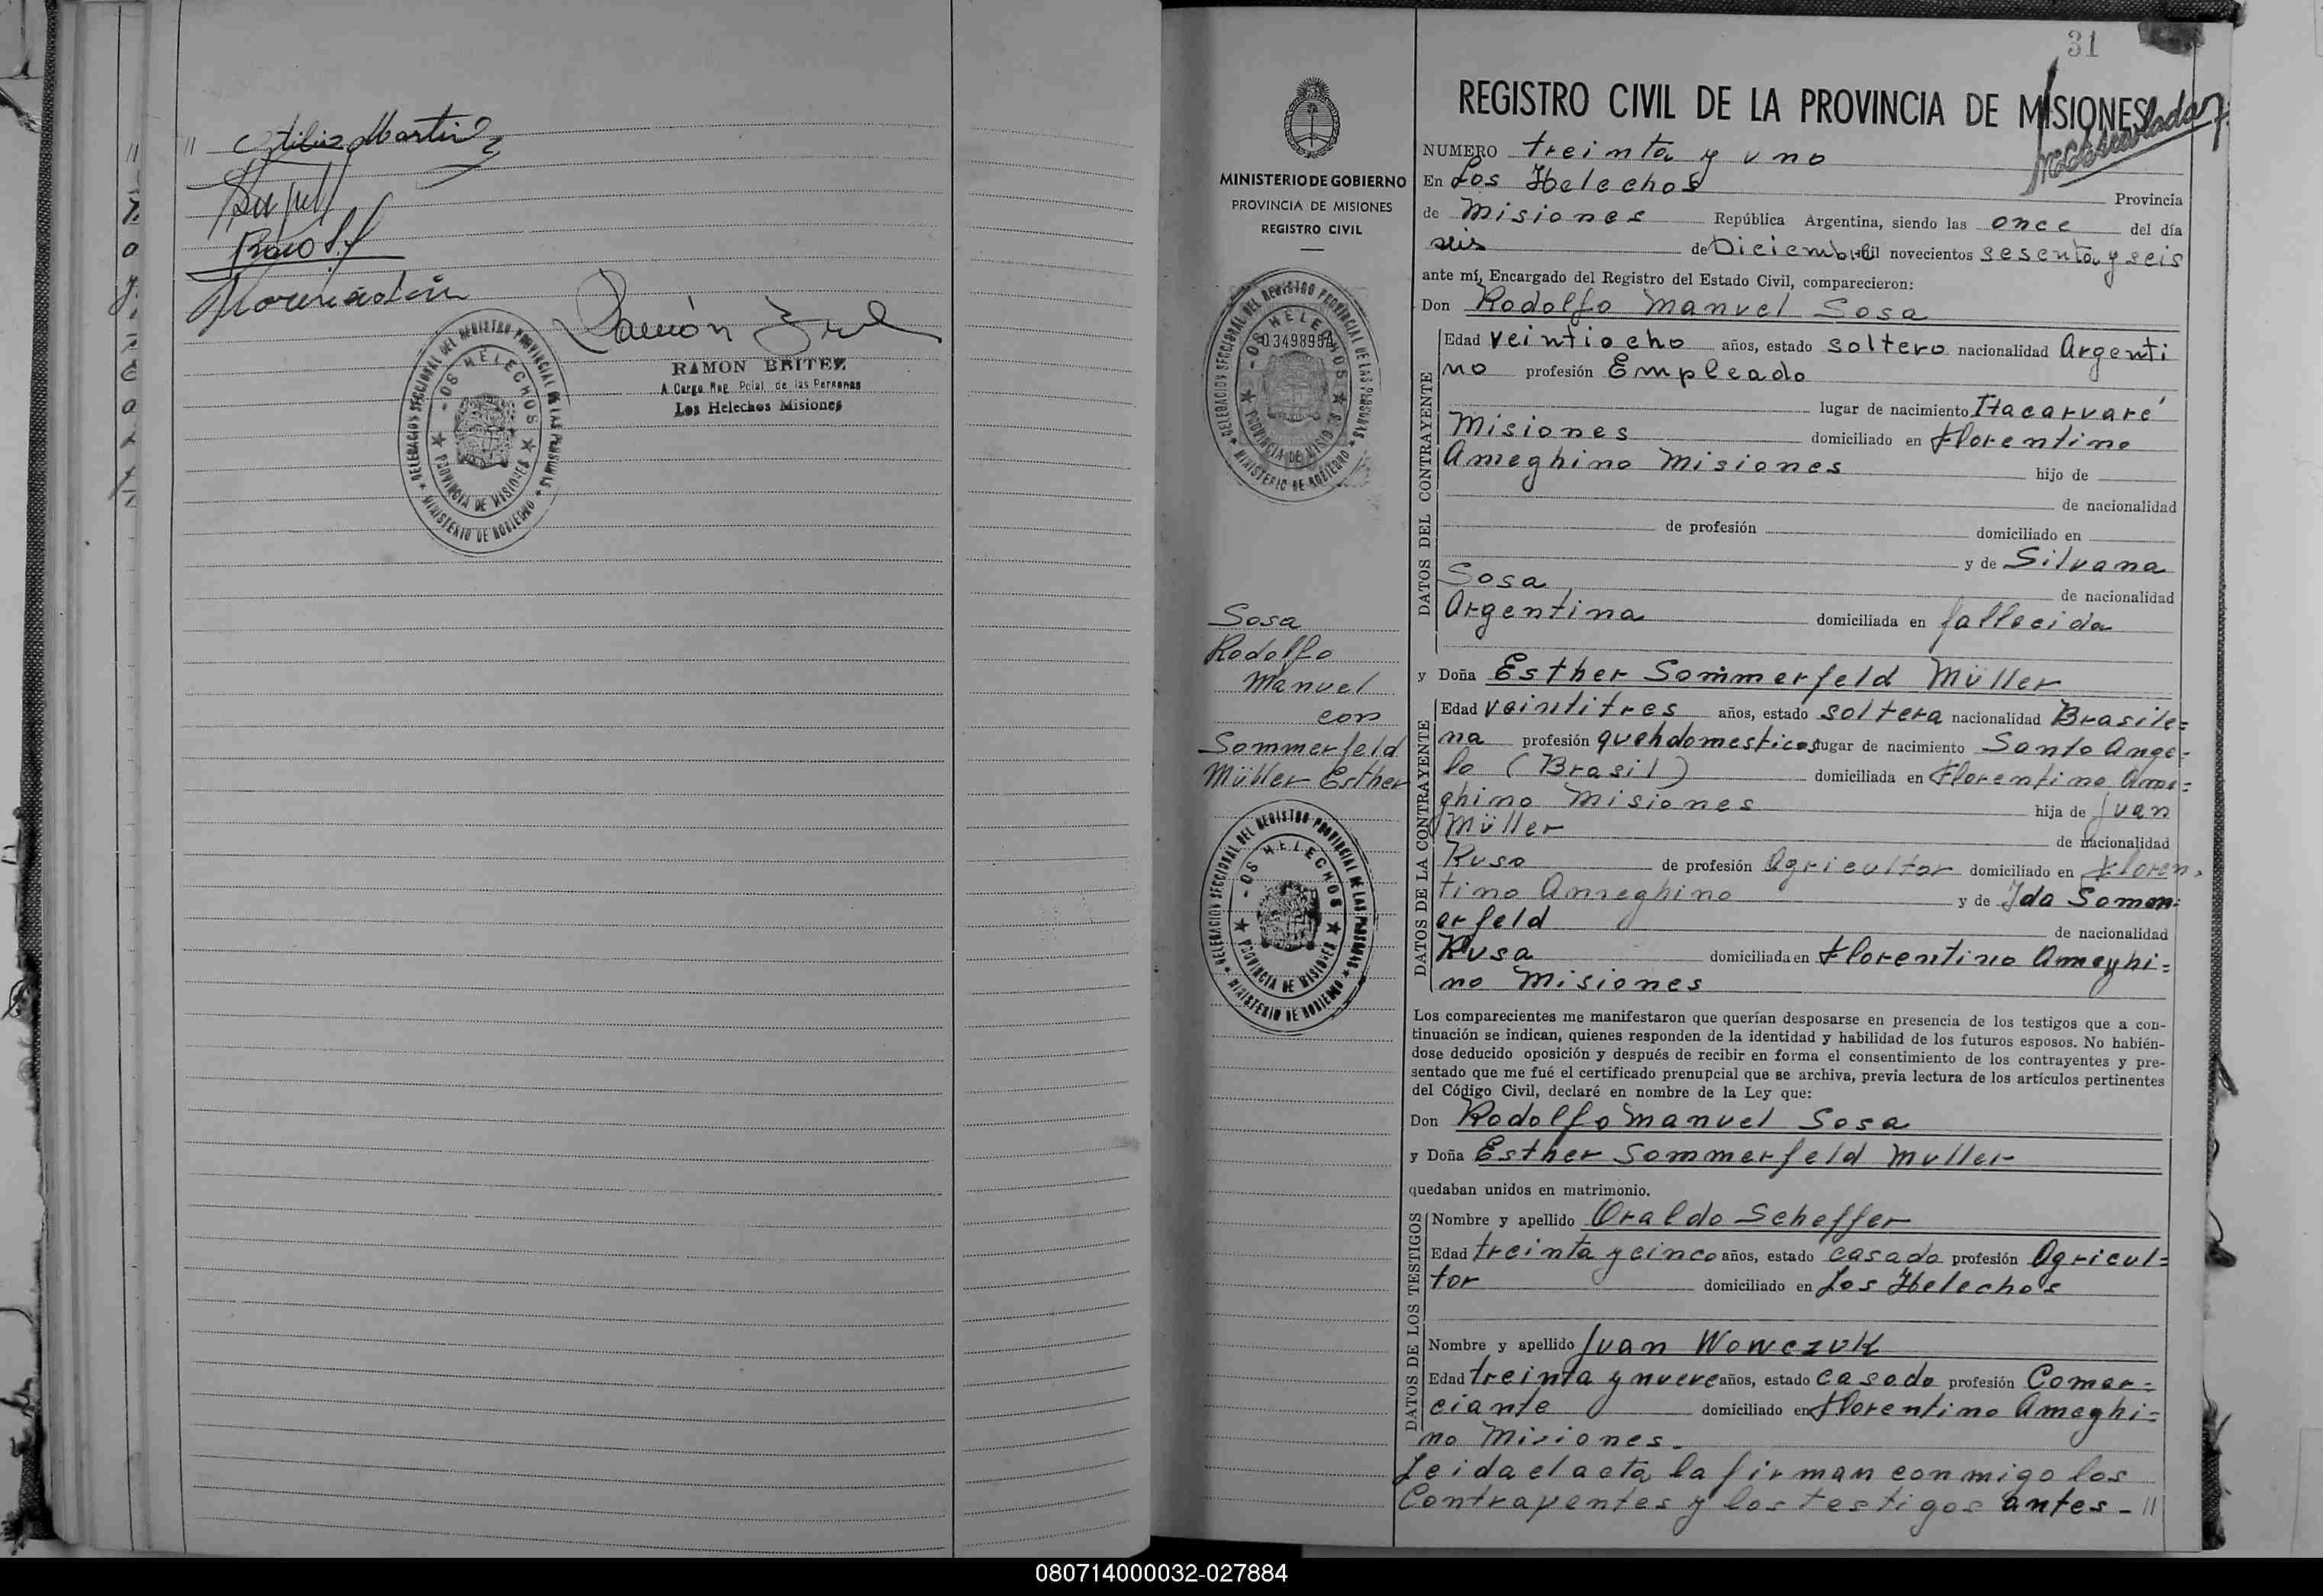 RAMON BRITEZ
A Cargo Reg. Pcial. de las Personas
Los Helechos Misiones
DELEGACION SECCIONAL DEL REGISTRO PROVINCIAL DE LAS PERSONAS
LOS HELECHOS
PROVINCIA DE MISIONES
MINISTERIO DE GOBIERNO
31
REGISTRO CIVIL DE LA PROVINCIA DE MISIONES
MINISTERIO DE GOBIERNO
PROVINCIA DE MISIONES
REGISTRO CIVIL
DELEGACION SECCIONAL DEL REGISTRO PROVINCIAL DE LAS PERSONAS
LOS HELECHOS
PROVINCIA DE MISIONES
MINISTERIO DE GOBIERNO
Sosa
Rodolfo
Manuel
con
Sommerfeld
Müller Esther
DELEGACION SECCIONAL DEL REGISTRO PROVINCIAL DE LAS PERSONAS
LOS HELECHOS
PROVINCIA DE MISIONES
MINISTERIO DE GOBIERNO
NUMERO treinta y uno
En Los Helechos
Provincia
de Misiones República Argentina, siendo las once del día
seis de Diciemb mil novecientos sesenta y seis
ante mí, Encargado del Registro del Estado Civil, comparecieron:
Don Rodolfo Manuel Sosa
DATOS DEL CONTRAYENTE
Edad veintiocho años, estado soltero nacionalidad Argenti
no profesión Empleado
lugar de nacimiento Itacaruaré
Misiones domiciliado en Florentino
Ameghino Misiones hijo de
de nacionalidad
de profesión domiciliado en
y de Silvana
Sosa de nacionalidad
Argentina domiciliada en fallecida
y Doña Esther Sommerfeld Müller
DATOS DE LA CONTRAYENTE
Edad veintitres años, estado soltera nacionalidad Brasile=
na profesión quehdomesticos lugar de nacimiento Santo Ange=
lo (Brasil) domiciliada en Florentino Ame=
ghino Misiones hija de Juan
Müller de nacionalidad
Ruso de profesión Agricultor domiciliado en Floren=
tino Ameghino y de Ida Somm=
erfeld de nacionalidad
Rusa domiciliada en Florentino Ameghi=
no Misiones
Los comparecientes me manifestaron que querían desposarse en presencia de los testigos que a con-
tinuación se indican, quienes responden de la identidad y habilidad de los futuros esposos. No habién-
dose deducido oposición y después de recibir en forma el consentimiento de los contrayentes y pre-
sentado que me fué el certificado prenupcial que se archiva, previa lectura de los artículos pertinentes
del Código Civil, declaré en nombre de la Ley que:
Don Rodolfo Manuel Sosa
y Doña Esther Sommerfeld Muller
quedaban unidos en matrimonio.
DATOS DE LOS TESTIGOS
Nombre y apellido Oraldo Scheffer
Edad treinta y cinco años, estado casado profesión Agricul=
tor domiciliado en Los Helechos
Nombre y apellido Juan Wowczuk
Edad treinta y nueve años, estado casado profesión Comer=
ciante domiciliado en Florentino Ameghi=
no Misiones.
Leida el acta la firman conmigo los
Contrayentes y los testigos antes - //
080714000032-027884